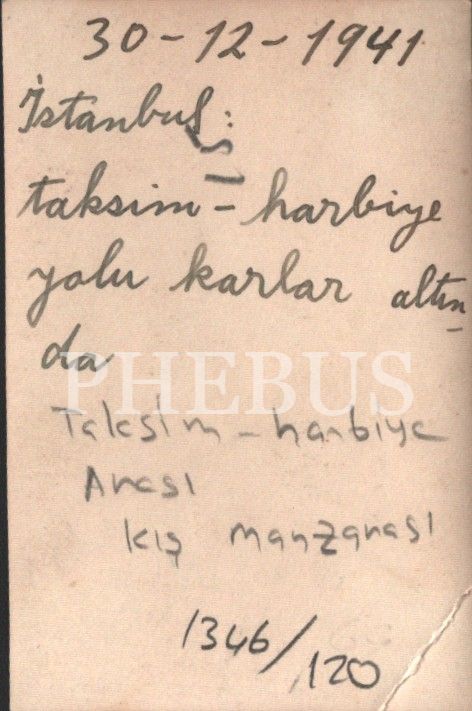 30-12-1941
İstanbul:
taksim - harbiye
yolu karlar altın-
da
PHEBUS
Taksim - harbiye
Arası
kış manzarası
1346/120